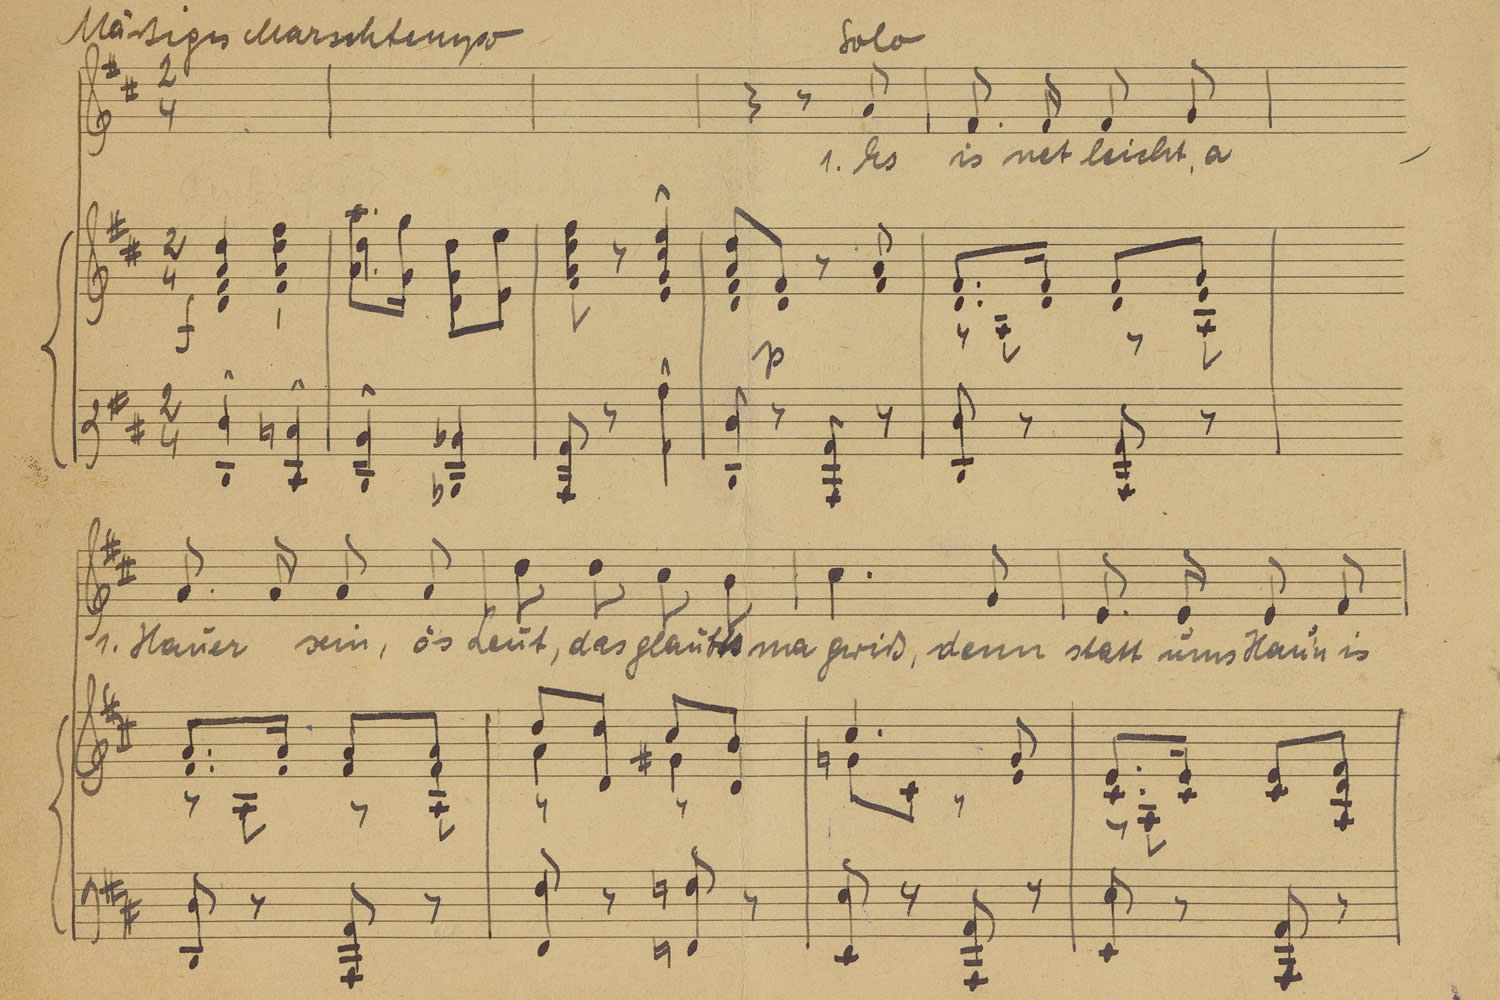 Mäßiges Marschtempo
Solo
1. Es is net leicht, a
f
p
1. Hauer sein, ös Leut, das glaubts ma gwiß, denn statt ums Haun is